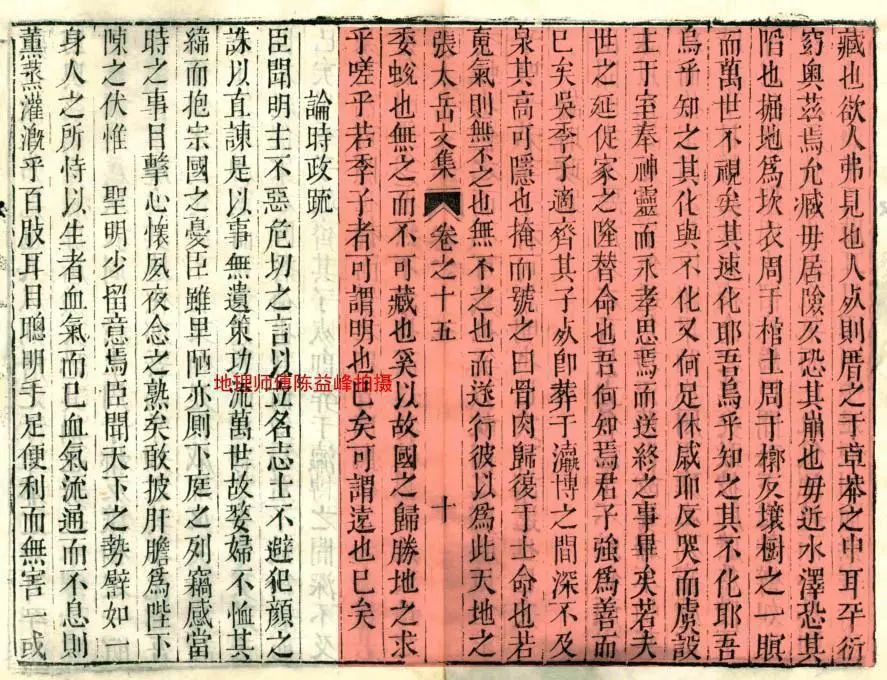 藏也欲人弗見也人歿則厝之于草莽之中耳平衍
窈奧茲焉允臧毋居險亥恐其崩也毋近水澤恐其
㗖也掘地爲坎衣周于棺土周于槨反壤樹之一瞑
而萬世不視矣其速化耶吾烏乎知之其不化耶吾
烏乎知之其化與不化又何足休戚耶反哭而虞設
主于室奉神靈而永孝思焉而送終之事畢矣若夫
世之延促家之隆替命也吾何知焉君子強爲善而
已矣吳季子適齊其子歿卽葬于瀛博之間深不及
泉其高可隱也掩而號之曰骨肉歸復于土命也若
䰟氣則無不之也無不之也而遂行彼以爲此天地之
張太岳文集 卷之十五 十
委蛻也無之而不可藏也奚以故國之歸勝地之求
乎嗟乎若季子者可謂明也已矣可謂遠也已矣
論時政疏
臣聞明主不惡危切之言以立名志士不避犯顔之
誅以直諫是以事無遺策功流萬世故嫠婦不恤其
緯而抱宗國之憂臣雖卑陋亦厠下庭之列竊感當
時之事目擊心懷夙夜念之熟矣敢披肝膽爲陛下
陳之伏惟 聖明少留意焉臣聞天下之勢譬如一
身人之所恃以生者血氣而已血氣流通而不息則
薰蒸灌漑乎百肢耳目聰明手足便利而無害一或
地理师傅陈益峰拍摄